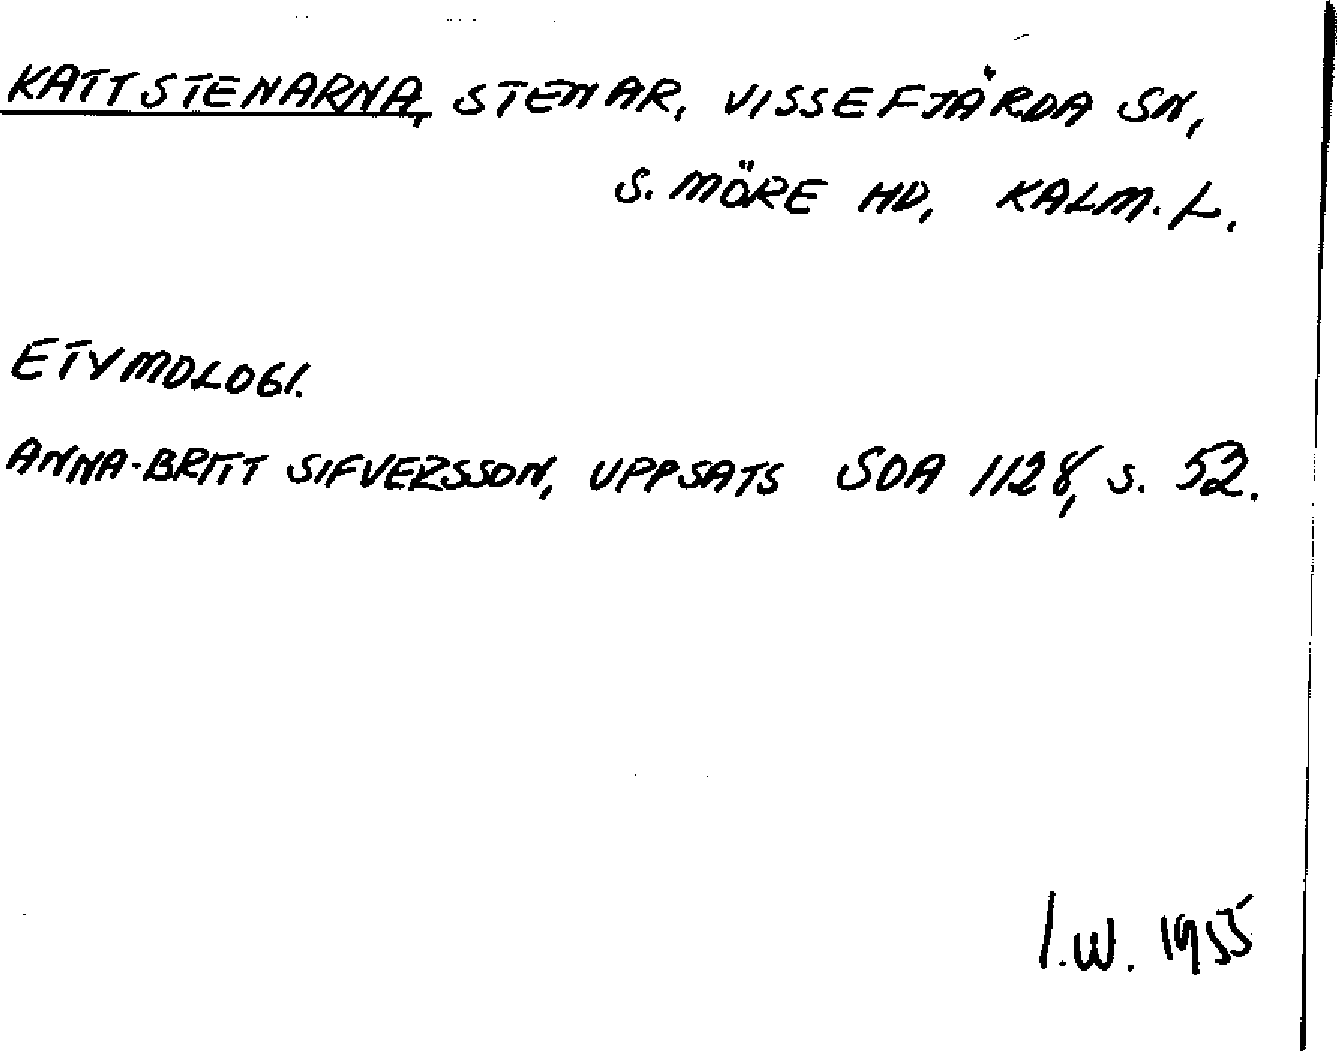 KATTSTENARNA, STENAR, VISSEFJÄRDA SN,
S. MÖRE HD, KALM. L.
ETYMOLOGI.
ANNA-BRITT SIFVERSSON, UPPSATS SOA 1128, S. 52.
I.W. 1955